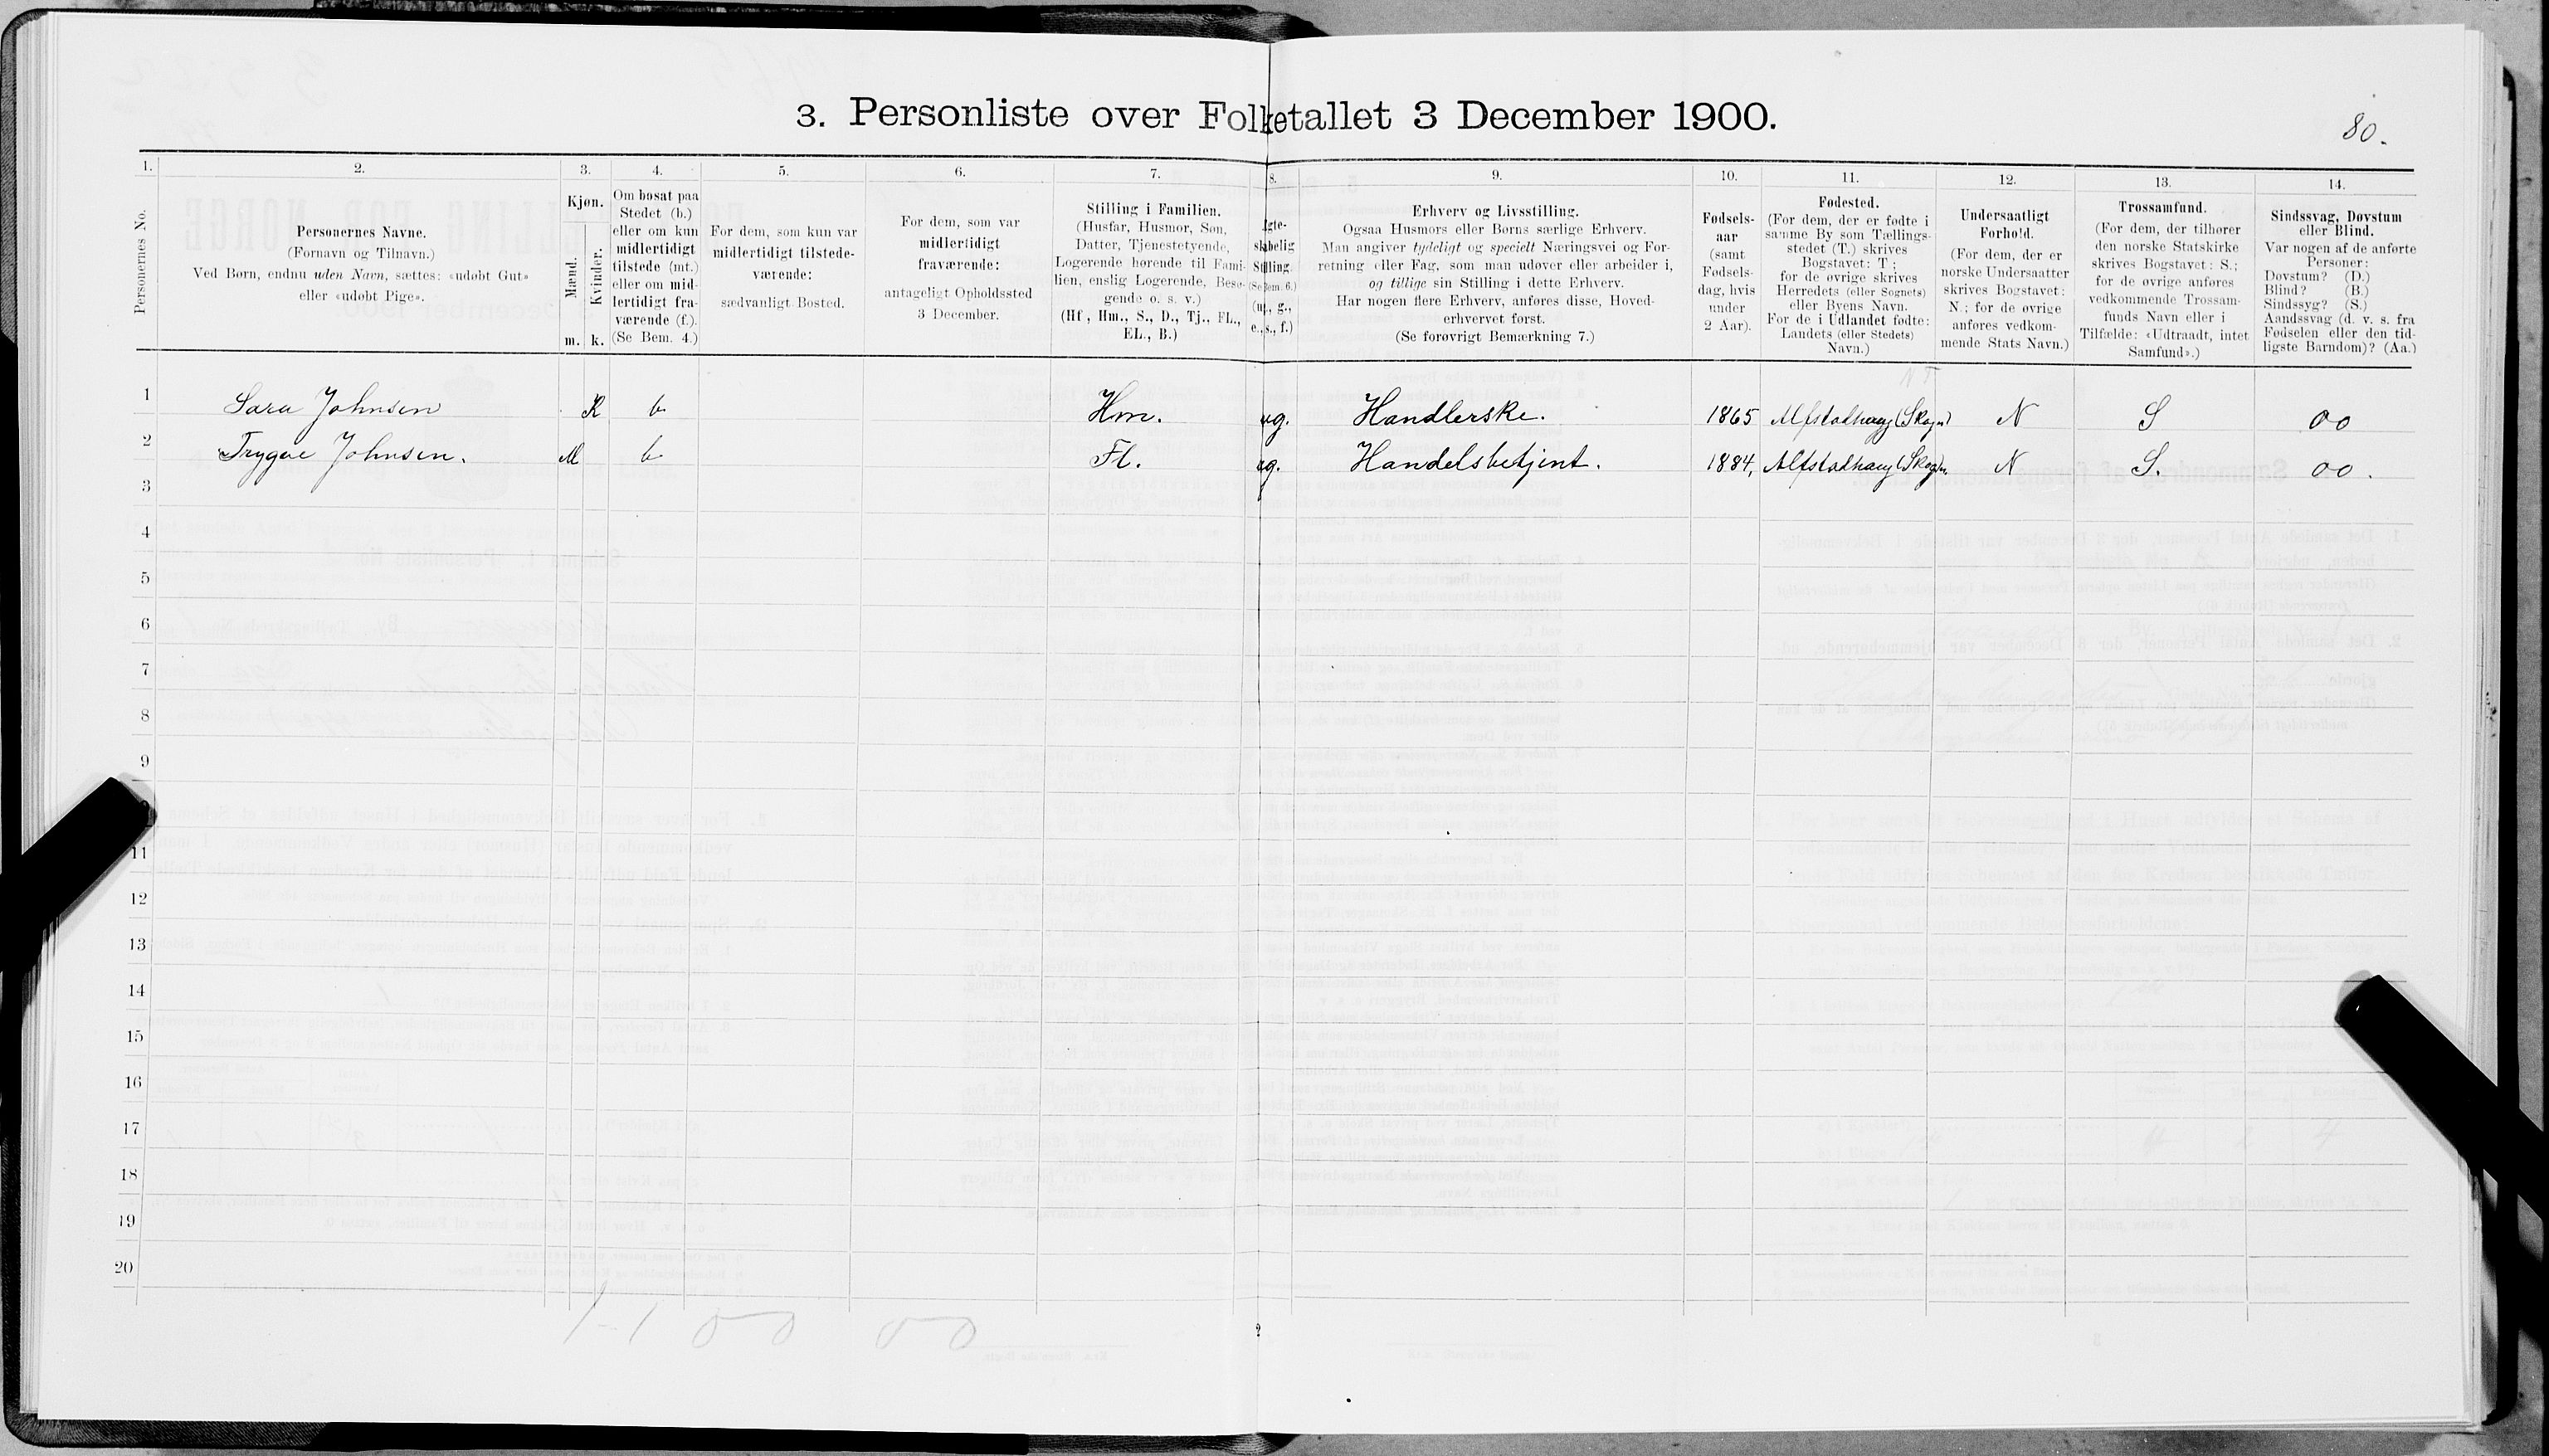 3. Personliste over Folketallet 3 December 1900.
80.
1.
2.
3.
4.
5.
6.
7.
8.
9.
10.
11.
12.
13.
14.
Personernes No.
Personernes Navne.
(Fornavn og Tilnavn.)
Ved Børn, endnu uden Navn, sættes: «udøbt Gut»
eller «udøbt Pige».
Kjøn.
Mænd.
Kvinder.
m. k.
Om bosat paa
Stedet (b.)
eller om kun
midlertidigt
tilstede (mt.)
eller om mid-
lertidigt fra-
værende (f.).
(Se Bem. 4.)
For dem, som kun var
midlertidigt tilstede-
værende:
sædvanligt Bosted.
For dem, som var
midlertidigt
fraværende:
antageligt Opholdssted
3 December.
Stilling i Familien.
(Husfar, Husmor, Søn,
Datter, Tjenestetyende,
Logerende hørende til Fami-
lien, enslig Logerende, Besø-
gende o. s. v.)
(Hf., Hm., S., D., Tj., FL.,
EL., B.)
Ægte-
skabelig
Stilling.
(Se Bem. 6.)
(ug., g.,
e., s., f.)
Erhverv og Livsstilling.
Ogsaa Husmors eller Børns særlige Erhverv.
Man angiver tydeligt og specielt Næringsvei og For-
retning eller Fag, som man udøver eller arbeider i,
og tillige sin Stilling i dette Erhverv.
Har nogen flere Erhverv, anføres disse, Hoved-
erhvervet først.
(Se forøvrigt Bemærkning 7.)
Fødsels-
aar
(samt
Fødsels-
dag, hvis
under
2 Aar).
Fødested.
(For dem, der er fødte i
samme By som Tællings-
stedet (T.) skrives
Bogstavet: T;
for de øvrige skrives
Herredets (eller Sognets)
eller Byens Navn.
For de i Udlandet fødte:
Landets (eller Stedets)
Navn.)
Undersaatligt
Forhold.
(For dem, der er
norske Undersaatter
skrives Bogstavet:
N.; for de øvrige
anføres vedkom-
mende Stats Navn.)
Trossamfund.
(For dem, der tilhører
den norske Statskirke
skrives Bogstavet: S.;
for de øvrige anføres
vedkommende Trossam-
funds Navn eller i
Tilfælde: «Udtraadt, intet
Samfund».)
Sindssvag, Døvstum
eller Blind.
Var nogen af de anførte
Personer:
Døvstum? (D.)
Blind? (B.)
Sindssyg? (S.)
Aandssvag (d. v. s. fra
Fødselen eller den tid-
ligste Barndom)? (Aa.)
NT
1 Sara Johnsen K b Hm. ug. Handlerske. 1865 Alfstadhaug (Skogn) N S 00
2 Trygve Johnsen. M b Fl. ug. Handelsbetjent. 1884, Alfstadhaug (Skogn N S. 00.
3
4
5
6
7
8
9
11
12
13
14
15
16
17
18
19
20
1-1 00 00
2